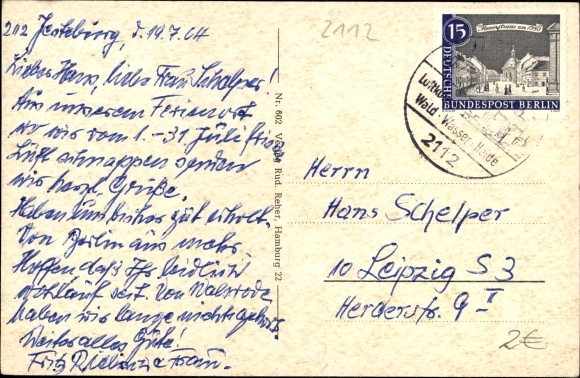 2112 Jesteburg, d. 19.7.64
Lieber Hans, liebe Frau Schelper!
Aus unserem Ferienort
wo wir vom 1.-31 Juli frische
Luft schnappen senden
wir herzl. Grüße.
Haben uns bisher gut erholt.
Von Berlin aus mehr.
Hoffen daß Ihr leidlich
wohlauf seit. Von Walsrode
haben wir lange nichts gehört.
Weiter alles Gute!
Fritz und Frau.
Nr. 602 Verlag Rud. Reher, Hamburg 22
2112
15
DEUTSCHE
BUNDESPOST BERLIN
Wald · Wasser · Heide
2112
Herrn
Hans Schelper
10 Leipzig S 3
Herderstr. 9-II
2€